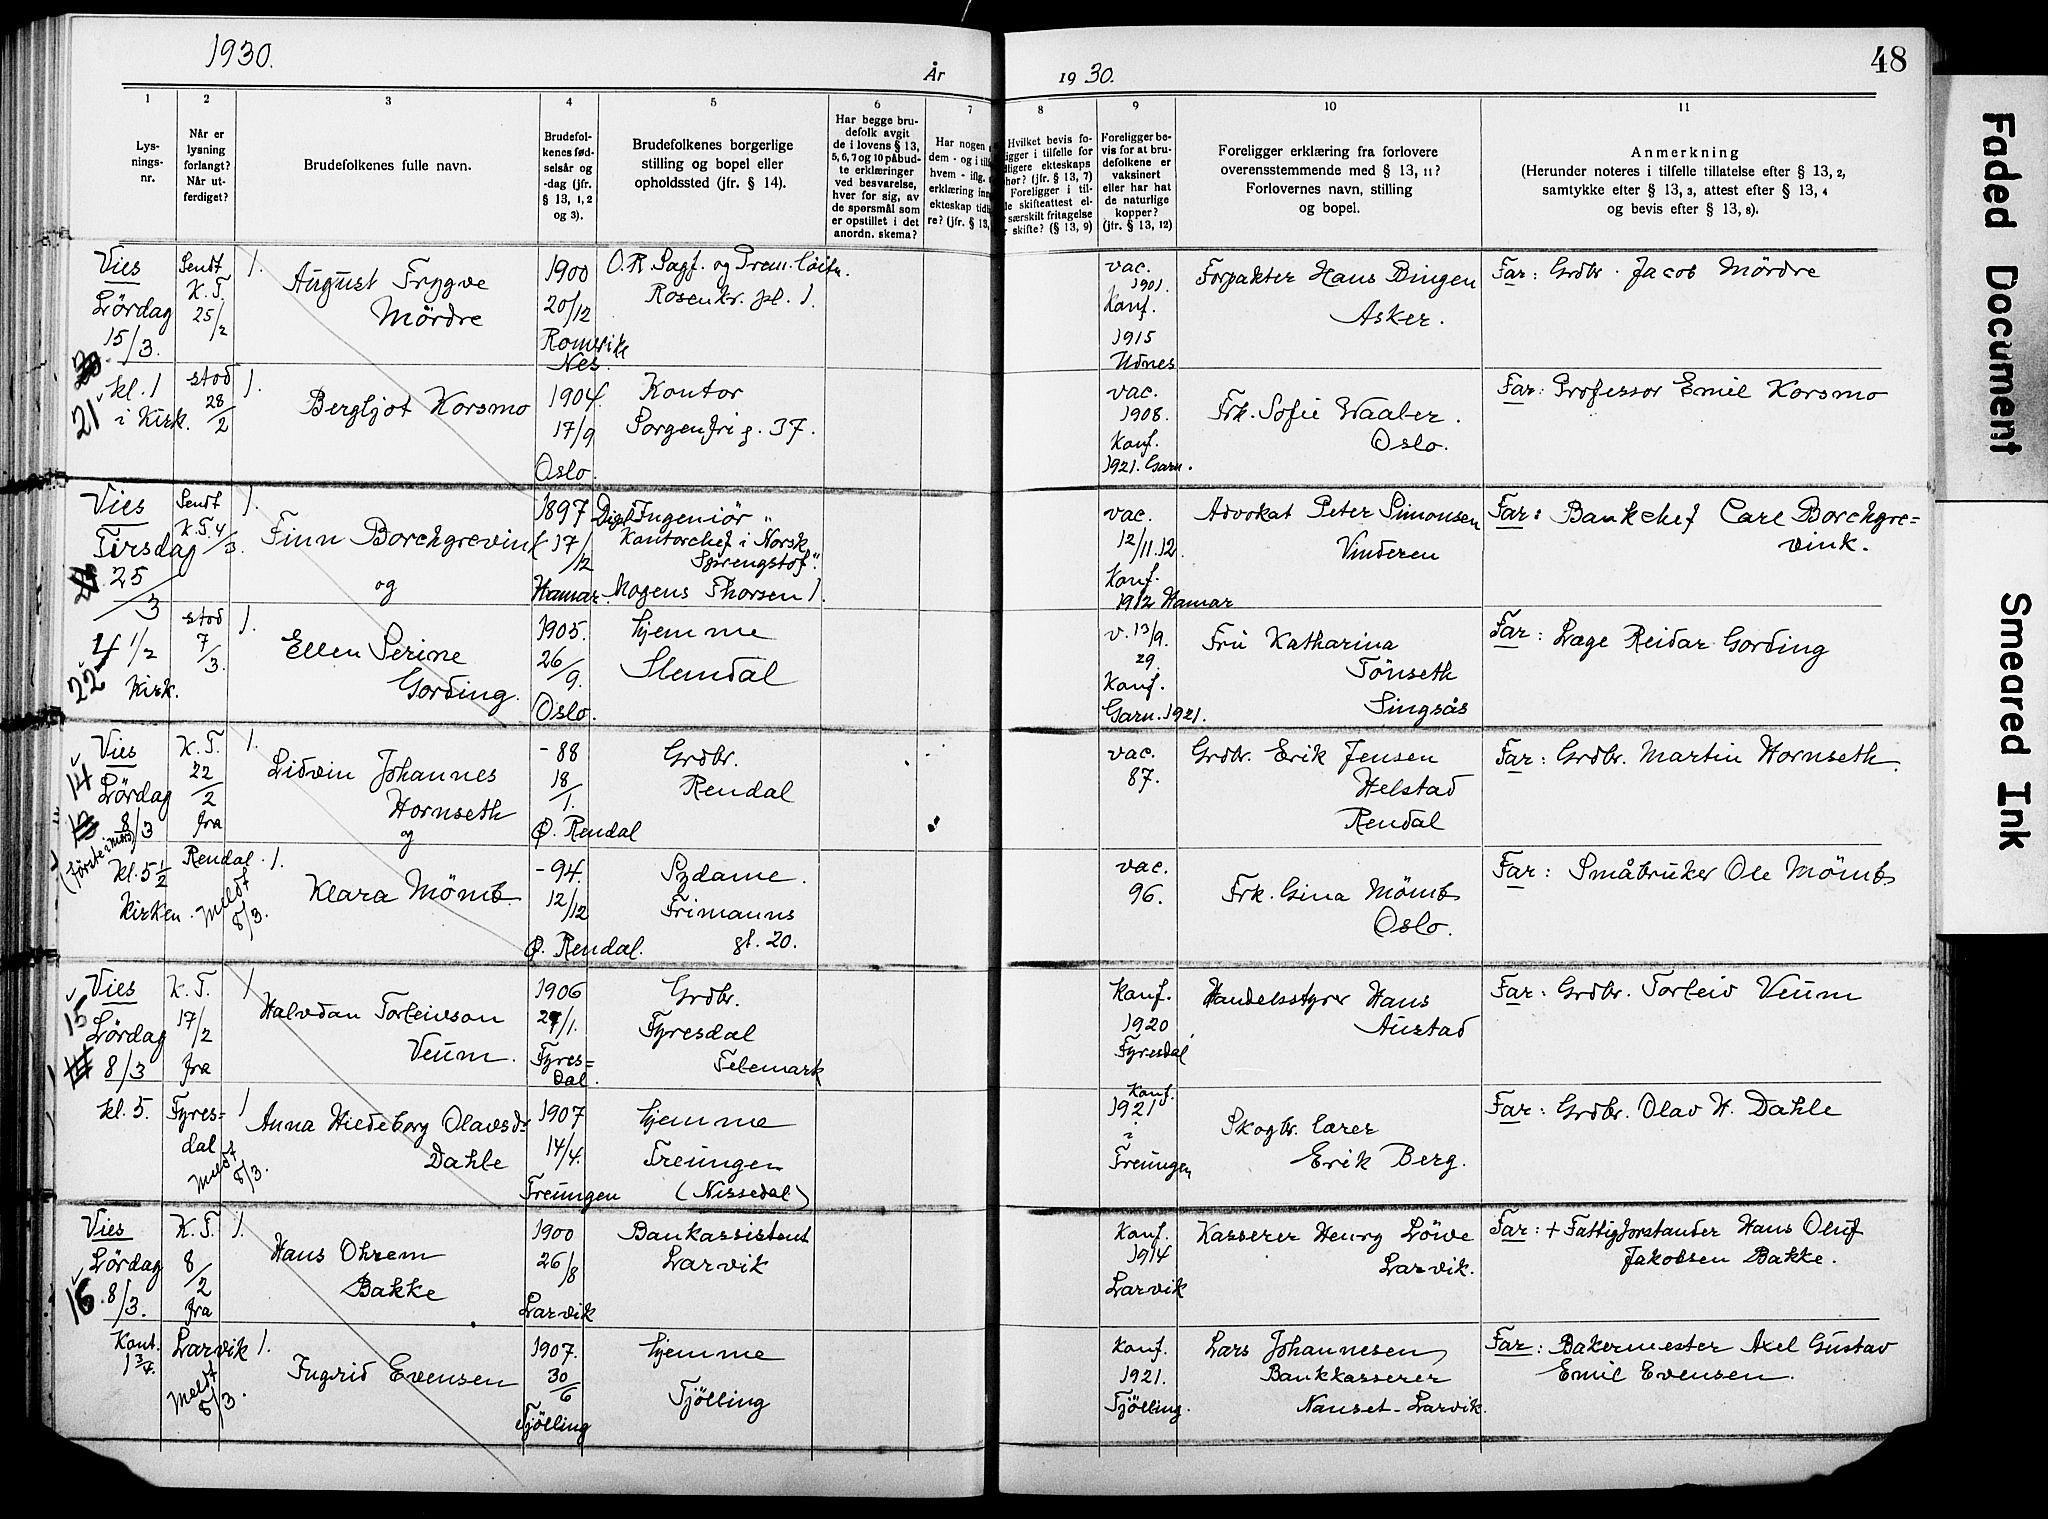 1930.
År
1930.
48
1
Lys-
nings-
nr.
2
Når er
lysning
forlangt?
Når ut-
ferdiget?
3
Brudefolkenes fulle navn.
4
Brudefol-
kenes fød-
selsår og
-dag (jfr.
§ 13, 1, 2
og 3).
5
Brudefolkenes borgerlige
stilling og bopel eller
opholdssted (jfr. § 14).
6
Har begge bru-
defolk avgit
de i lovens § 13,
5, 6, 7 og 10 påbud-
te erklæringer
ved besvarelse,
hver for sig, av
de spørsmål som
er opstillet i det
anordn. skema?
7
Har nogen
dem - og i til
hvem - iflg.
erklæring inn
ekteskap tidl
re? (jfr. § 13,
8
Hvilket bevis fo-
ligger i tilfelle for
dligere ekteskaps
hør? (jfr. § 13, 7)
Foreligger i til-
le skifteattest el-
særskilt fritagelse
r skifte? (§ 13, 9)
9
Foreligger be-
vis for at bru-
defolkene er
vaksinert
eller har hat
de naturlige
kopper?
(jfr. § 13, 12)
10
Foreligger erklæring fra forlovere
overensstemmende med § 13, 11?
Forlovernes navn, stilling
og bopel.
11
Anmerkning
(Herunder noteres i tilfelle tillatelse efter § 13, 2,
samtykke efter § 13, 3, attest efter § 13, 4
og bevis efter § 13, 8).
Vies
Lördag
15/3.
kl. 1
i Kirk.
21
Sendt
K.T.
25/2
stod
28/2
1.
August Trygve
Mördre
1900
20/12
Romerike
Nes.
O.R. Sagf. og Prem. löitn.
Rosenkr. pl. 1.
vac.
1901.
Konf.
1915
Udnes
Forpakter Hans Bingen
Asker.
Far: Grdbr. Jacob Mördre
1.
Bergljot Korsmo
1904.
17/9
Oslo.
Kontor
Sorgenfri g. 37.
vac.
1908.
Konf.
1921. Garn.
Frk. Sofie Waaler.
Oslo.
Far: Professor Emil Korsmo
Vies
Tirsdag
25/3
4 1/2
Kirk.
22
Sendt
K.T. 4/3.
stod
7/3.
1.
Finn Borchgrevink
og
1897
17/12
Hamar.
Dipl. Ingeniör "
Kontorchef i Norsk
Sprengstof".
Mogens Thorsen 1.
vac.
12/11.12.
Konf.
1912 Hamar
Advokat Peter Simonsen
Vinderen
Far: Bankchef Carl Borchgre=
vink.
1.
Ellen Serine
Gording.
1905.
26/9.
Oslo.
hjemme
Slemdal
v. 13/9.
29.
Konf.
Garn. 1921.
Fru Katharina
Tönseth
Singsås
Far: Læge Reidar Gording
14
Vies
Lördag
8/3
(förste i mars)
kl. 5 1/2
Kirken.
K.T.
22/2
fra
Rendal.
Meldt
8/3.
1.
Lidvin Johannes
Hornseth
og
-88
18/1.
Ø. Rendal
Grdbr.
Rendal
vac.
87.
Grdbr. Erik Jensen
Helstad
Rendal
Far: Grdbr. Martin Hornseth.
1.
Klara Mömb
-94.
12/12
Ø. Rendal.
Sydame.
Frimanns
gt. 20.
vac.
96.
Frk. Gina Mömb
Oslo.
Far: Småbruker Ole Mömb
15
Vies
Lördag
8/3
kl. 5.
K.T.
17/2
fra
Fyres=
dal
Meldt
8/3.
1
Halvdan Torleivson
Veum.
1906
27/1.
Fyres=
dal.
Grdbr.
Fyresdal
Telemark
Konf.
1920
Fyresdal
Handelsstyrer Hans
Austad
Far: Grdbr. Torleiv Veum
1
Anna Hildeborg Olavsdr
Dahle
1907
14/4.
Treungen
hjemme
Treungen
(Nissedal)
Konf.
1921
i
Treungen
Skogbr. lærer
Erik Berg.
Far: Grdbr. Olav H. Dahle
16
Vies
Lördag
8/3.
Kont.
1 3/4.
K.T.
8/2
fra
Larvik
Meldt
8/3.
1.
Hans Ohrem
Bakke
1900
26/8
Larvik
Bankassistent
Larvik
Konf.
1914
Larvik
Kasserer Henry Löwe
Larvik.
Far: + Fattigforstander Hans Oluf
Jakobsen Bakke.
1.
Ingrid Evensen
1907.
30/6
Tjölling
hjemme
Tjölling
Konf.
1921.
Tjölling.
Lars Johannesen
Bankkasserer
Nanset - Larvik.
Far: Bakermester Axel Gustav
Emil Evensen.
Faded Document
Smeared Ink